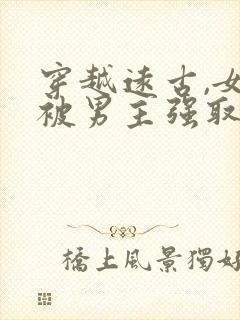 穿越远古,女
被男主强取
橋上風景獨好